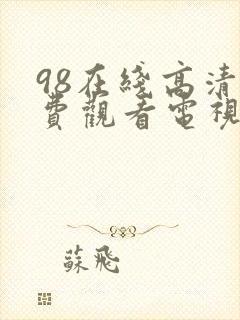 98在綫高清
費觀看電視
蘇飛